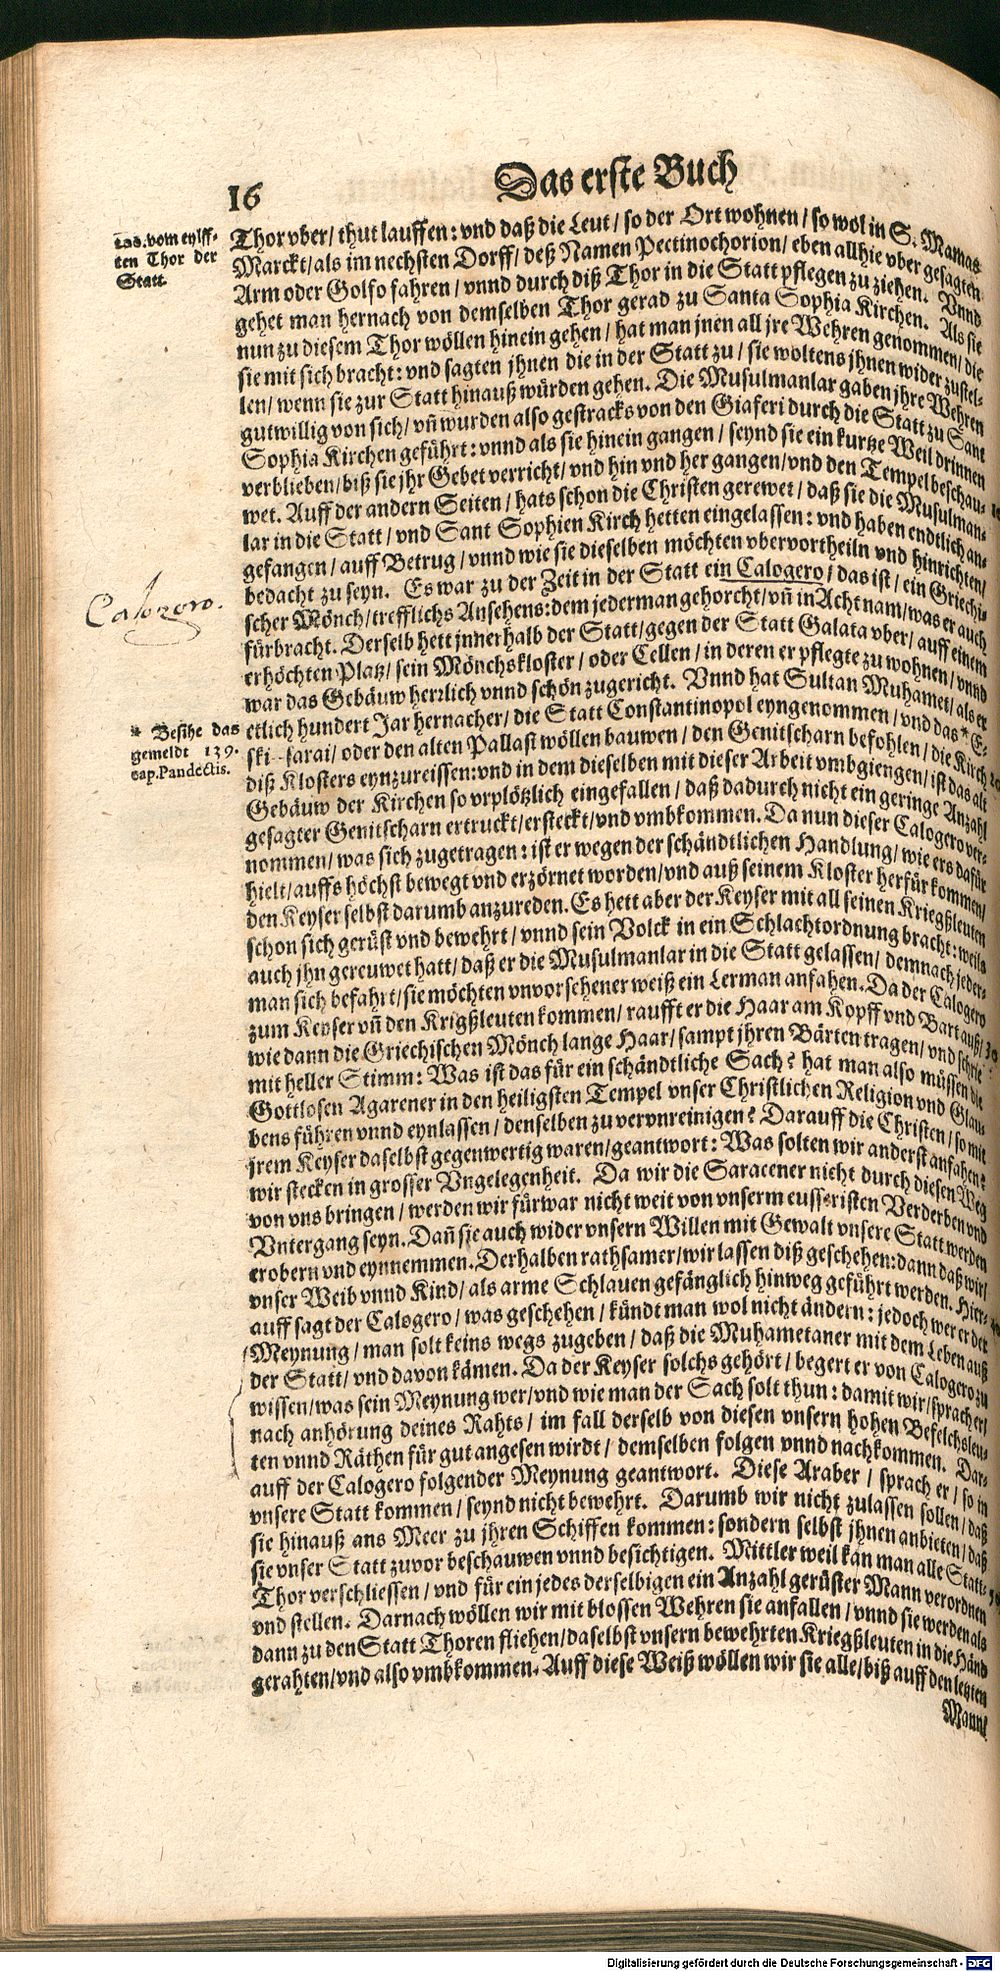 16
Das erste Buch
Las. vom eylff-
ten Thor der
Statt.
Thor vber/ thut lauffen: vnd daß die Leut/ so der Ort wohnen/ so wol in S. Mamas
Marckt/ als im nechsten Dorff/ deß Namen Pectinochorion/ eben allhie vber gesagten
Arm oder Golfo fahren/ vnnd durch diß Thor in die Statt pflegen zu ziehen. Vnnd
gehet man hernach von demselben Thor gerad zu Santa Sophia Kirchen. Als sie
nun zu diesem Thor wöllen hinein gehen/ hat man jnen all jre Wehren genommen/ die
sie mit sich bracht: vnd sagten jhnen die in der Statt zu/ sie woltens jhnen wider zustel-
len/ wenn sie zur Statt hinauß würden gehen. Die Musulmanlar gaben jhre Wehren
gutwillig von sich/ vñ wurden also gestracks von den Giaferi durch die Statt zu Sant
Sophia Kirchen geführt: vnnd als sie hinein gangen/ seynd sie ein kurtze Weil drinnen
verblieben/ biß sie jhr Gebet verricht/ vnd hin vnd her gangen/ vnd den Tempel beschau-
wet. Auff der andern Seiten/ hats schon die Christen gerewet/ daß sie die Musulman-
lar in die Statt/ vnd Sant Sophien Kirch hetten eingelassen: vnd haben endtlich an-
gefangen/ auff Betrug/ vnnd wie sie dieselben möchten vbervortheiln vnd hinrichten/
bedacht zu seyn. Es war zu der Zeit in der Statt ein Calogero/ das ist/ ein Griechi-
scher Mönch/ trefflichs Ansehens: dem jederman gehorcht/ vñ in Acht nam/ was er auch
fürbracht. Derselb hett jnnerhalb der Statt/ gegen der Statt Galata vber/ auff einem
erhöchten Platz/ sein Mönchskloster/ oder Cellen/ in deren er pflegte zu wohnen/ vnnd
war das Gebäuw herrlich vnnd schön zugericht. Vnnd hat Sultan Muhamet/ als er
etlich hundert Jar hernacher/ die Statt Constantinopol eyngenommen/ vnd das * E-
ski-sarai/ oder den alten Pallast wöllen bauwen/ den Genitscharn befohlen/ die Kirch
diß Klosters eynzureissen: vnd in dem dieselben mit dieser Arbeit vmbgiengen/ ist das alt
Gebäuw der Kirchen so vrplötzlich eingefallen/ daß dadurch nicht ein geringe Anzahl
gesagter Genitscharn ertruckt/ ersteckt/ vnd vmbkommen. Da nun dieser Calogero ver-
nommen/ was sich zugetragen: ist er wegen der schändtlichen Handlung/ wie ers dafür
hielt/ auffs höchst bewegt vnd erzörnet worden/ vnd auß seinem Kloster herfür kommen/
den Keyser selbst darumb anzureden. Es hett aber der Keyser mit all seinen Kriegßleuten
schon sich gerüst vnd bewehrt/ vnnd sein Volck in ein Schlachtordnung bracht: weils
auch jhn gereuwet hatt/ daß er die Musulmanlar in die Statt gelassen/ demnach jeder-
man sich befahrt/ sie möchten vnvorsehener weiß ein Lerman anfahen. Da der Calogero
zum Keyser vñ den Krigßleuten kommen/ raufft er die Haar am Kopff vnd Bart auß/
wie dann die Griechischen Mönch lange Haar/ sampt jhren Bärten tragen/ vnd schrie
mit heller Stimm: Was ist das für ein schändtliche Sach? hat man also müssen die
Gottlosen Agarener in den heiligsten Tempel vnser Christlichen Religion vnd Glau-
bens führen vnnd eynlassen/ denselben zu vervnreinigen? Darauff die Christen/ so mit
jrem Keyser daselbst gegenwertig waren/ geantwort: Was solten wir anderst anfahen?
wir stecken in grosser Vngelegenheit. Da wir die Saracener nicht durch diesen Weg
von vns bringen/ werden wir fürwar nicht weit von vnserm eussersten Verderben vnd
Vntergang seyn. Dañ sie auch wider vnsern Willen mit Gewalt vnsere Statt werden
erobern vnd eynnemmen. Derhalben rathsamer/ wir lassen diß geschehen: dann daß wir/
vnser Weib vnnd Kind/ als arme Schlauen gefänglich hinweg geführt werden. Hier-
auff sagt der Calogero/ was geschehen/ kündt man wol nicht ändern: jedoch wer er der
Meynung/ man solt keins wegs zugeben/ daß die Muhametaner mit dem Leben auß
der Statt/ vnd davon kämen. Da der Keyser solchs gehört/ begert er von Calogero zu
wissen/ was sein Meynung wer/ vnd wie man der Sach solt thun: damit wir/ sprach er/
nach anhörung deines Rahts/ im fall derselb von diesen vnsern hohen Befelchsleu-
ten vnnd Räthen für gut angesen wirdt/ demselben folgen vnnd nachkommen. Dar-
auff der Calogero folgender Meynung geantwort. Diese Araber/ sprach er/ so in
vnsere Statt kommen/ seynd nicht bewehrt. Darumb wir nicht zulassen sollen/ daß
sie hinauß ans Meer zu jhren Schiffen kommen: sondern selbst jhnen anbieten/ daß
sie vnser Statt zuvor beschauwen vnnd besichtigen. Mittler weil kan man alle Statt-
Thor verschliessen/ vnd für ein jedes derselbigen ein Anzahl gerüster Mann verordnen
vnd stellen. Darnach wöllen wir mit blossen Wehren sie anfallen/ vnnd sie werden als
dann zu den Statt Thoren fliehen/ daselbst vnsern bewehrten Kriegßleuten in die Händ
gerahten/ vnd also vmbkommen. Auff diese Weiß wöllen wir sie alle/ biß auff den letzten
Mann/
Calogero.
* Besihe das
gemeldt 139.
cap. Pandectis.
Digitalisierung gefördert durch die Deutsche Forschungsgemeinschaft - DFG